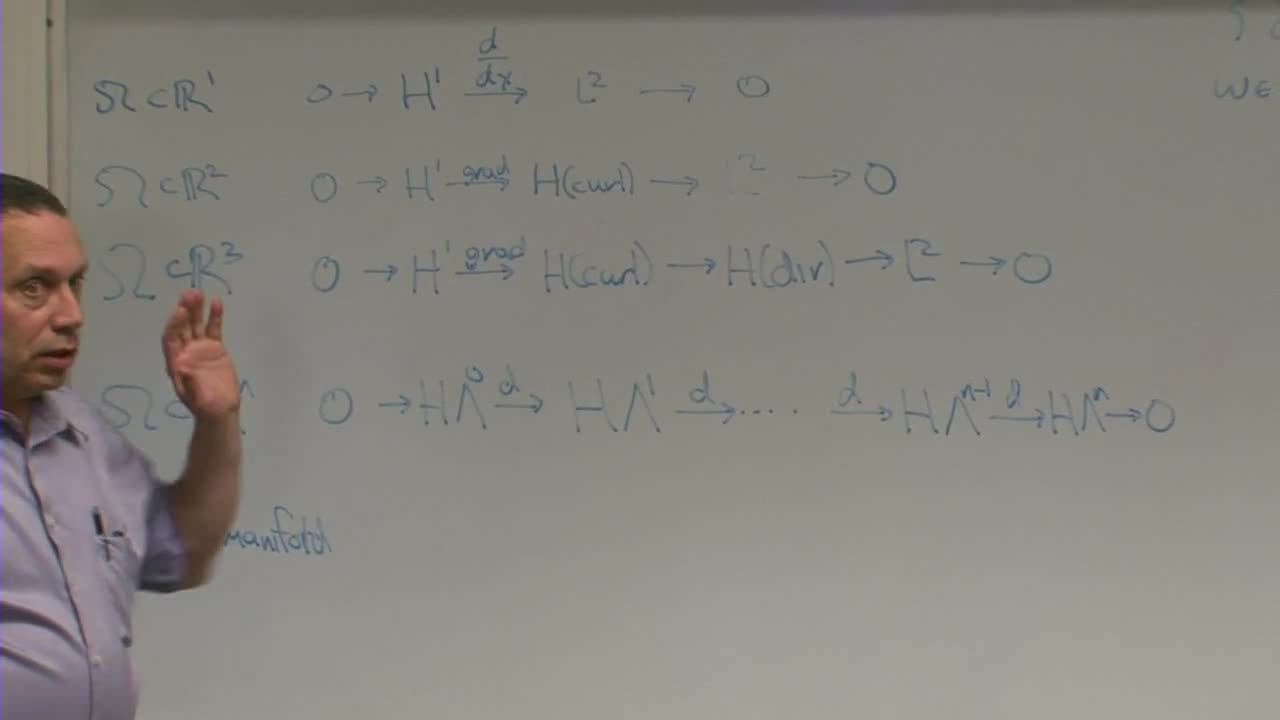 WE
Ω⊂ℝ¹ 0 → H¹ d/dx→ L² → 0
Ω⊂ℝ² 0 → H¹ grad→ H(curl) → L² → 0
Ω⊂ℝ³ 0 → H¹ grad→ H(curl) → H(div) → L² → 0
Ω⊂ n 0 → HΛ⁰ d→ HΛ¹ d→ .... d→ HΛⁿ⁻¹ d→ HΛⁿ → 0
manifold